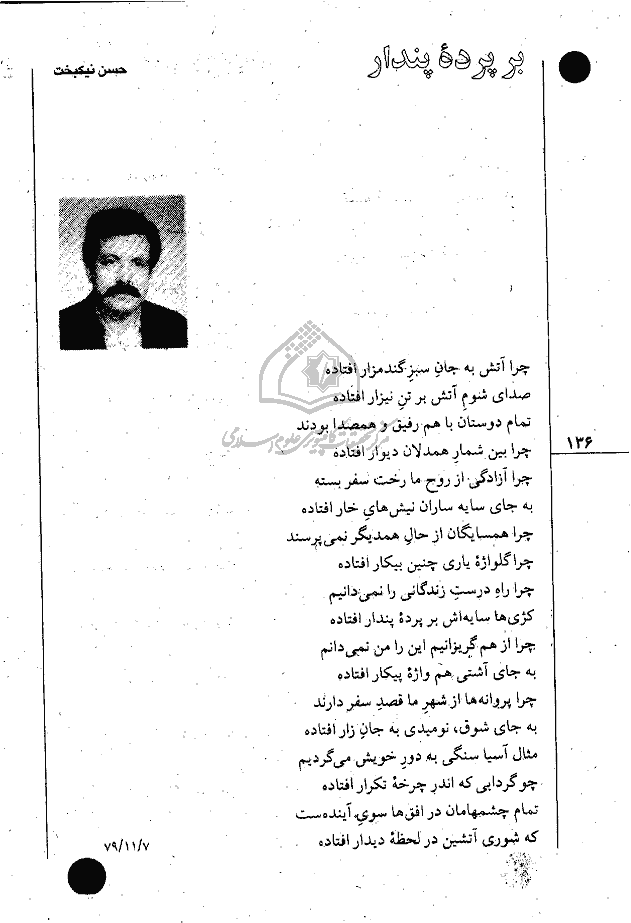 بر پردهٔ پندار
حسن نیکبخت
چرا آتش به جانِ سبزِ گندمزار افتاده
صدای شومِ آتش بر تنِ نیزار افتاده
تمام دوستان با هم رفیق و همصدا بودند
چرا بین شمارِ همدلان دیوار افتاده
چرا آزادگی از روح ما رخت سفر بسته
به جای سایه ساران نیش‌هایِ خار افتاده
چرا همسایگان از حالِ همدیگر نمی‌پرسند
چرا گلواژهٔ یاری چنین بیکار افتاده
چرا راهِ درستِ زندگانی را نمی‌دانیم
کژی‌ها سایه‌اش بر پردهٔ پندار افتاده
چرا از هم گریزانیم این را من نمی‌دانم
به جای آشتی هم واژهٔ پیکار افتاده
چرا پروانه‌ها از شهرِ ما قصدِ سفر دارند
به جای شوق، نومیدی به جانِ زار افتاده
مثال آسیا سنگی به دورِ خویش می‌گردیم
چو گردابی که اندرِ چرخهٔ تکرار افتاده
تمام چشمهامان در افق‌ها سویِ آینده‌ست
که شوری آتشین در لحظهٔ دیدار افتاده
۷۹/۱۱/۷
۱۳۶
مرکز تحقیقات کامپیوتری علوم اسلامی